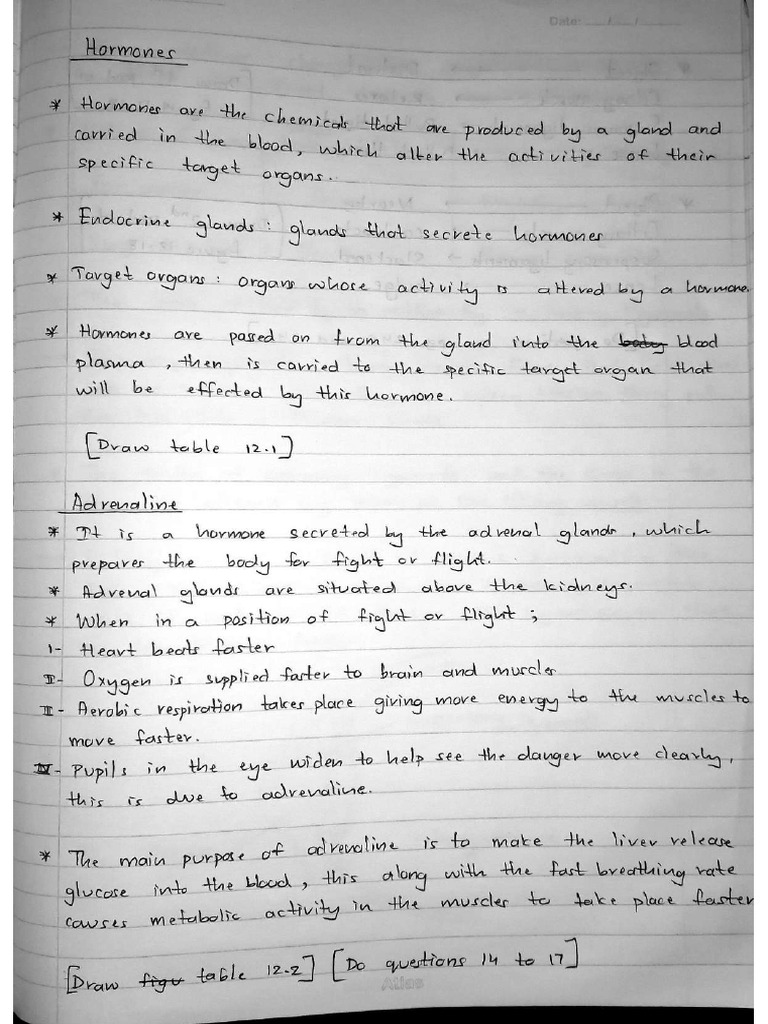 Date:
Hormones
* Hormones are the chemicals that are produced by a gland and
carried in the blood, which alter the activities of their
specific target organs.
* Endocrine glands : glands that secrete hormones
* Target organs : organs whose activity is altered by a hormone.
* Hormones are passed on from the gland into the blood
plasma, then is carried to the specific target organ that
will be effected by this hormone.
[Draw table 12.1]
Adrenaline
* It is a hormone secreted by the adrenal glands, which
prepares the body for fight or flight.
* Adrenal glands are situated above the kidneys.
* When in a position of fight or flight ;
I- Heart beats faster
II- Oxygen is supplied faster to brain and muscles
III- Aerobic respiration takes place giving more energy to the muscles to
move faster.
IV- Pupils in the eye widen to help see the danger more clearly,
this is due to adrenaline.
* The main purpose of adrenaline is to make the liver release
glucose into the blood, this along with the fast breathing rate
causes metabolic activity in the muscles to take place faster
[Draw figu table 12.2] [Do questions 14 to 17]
Atlas